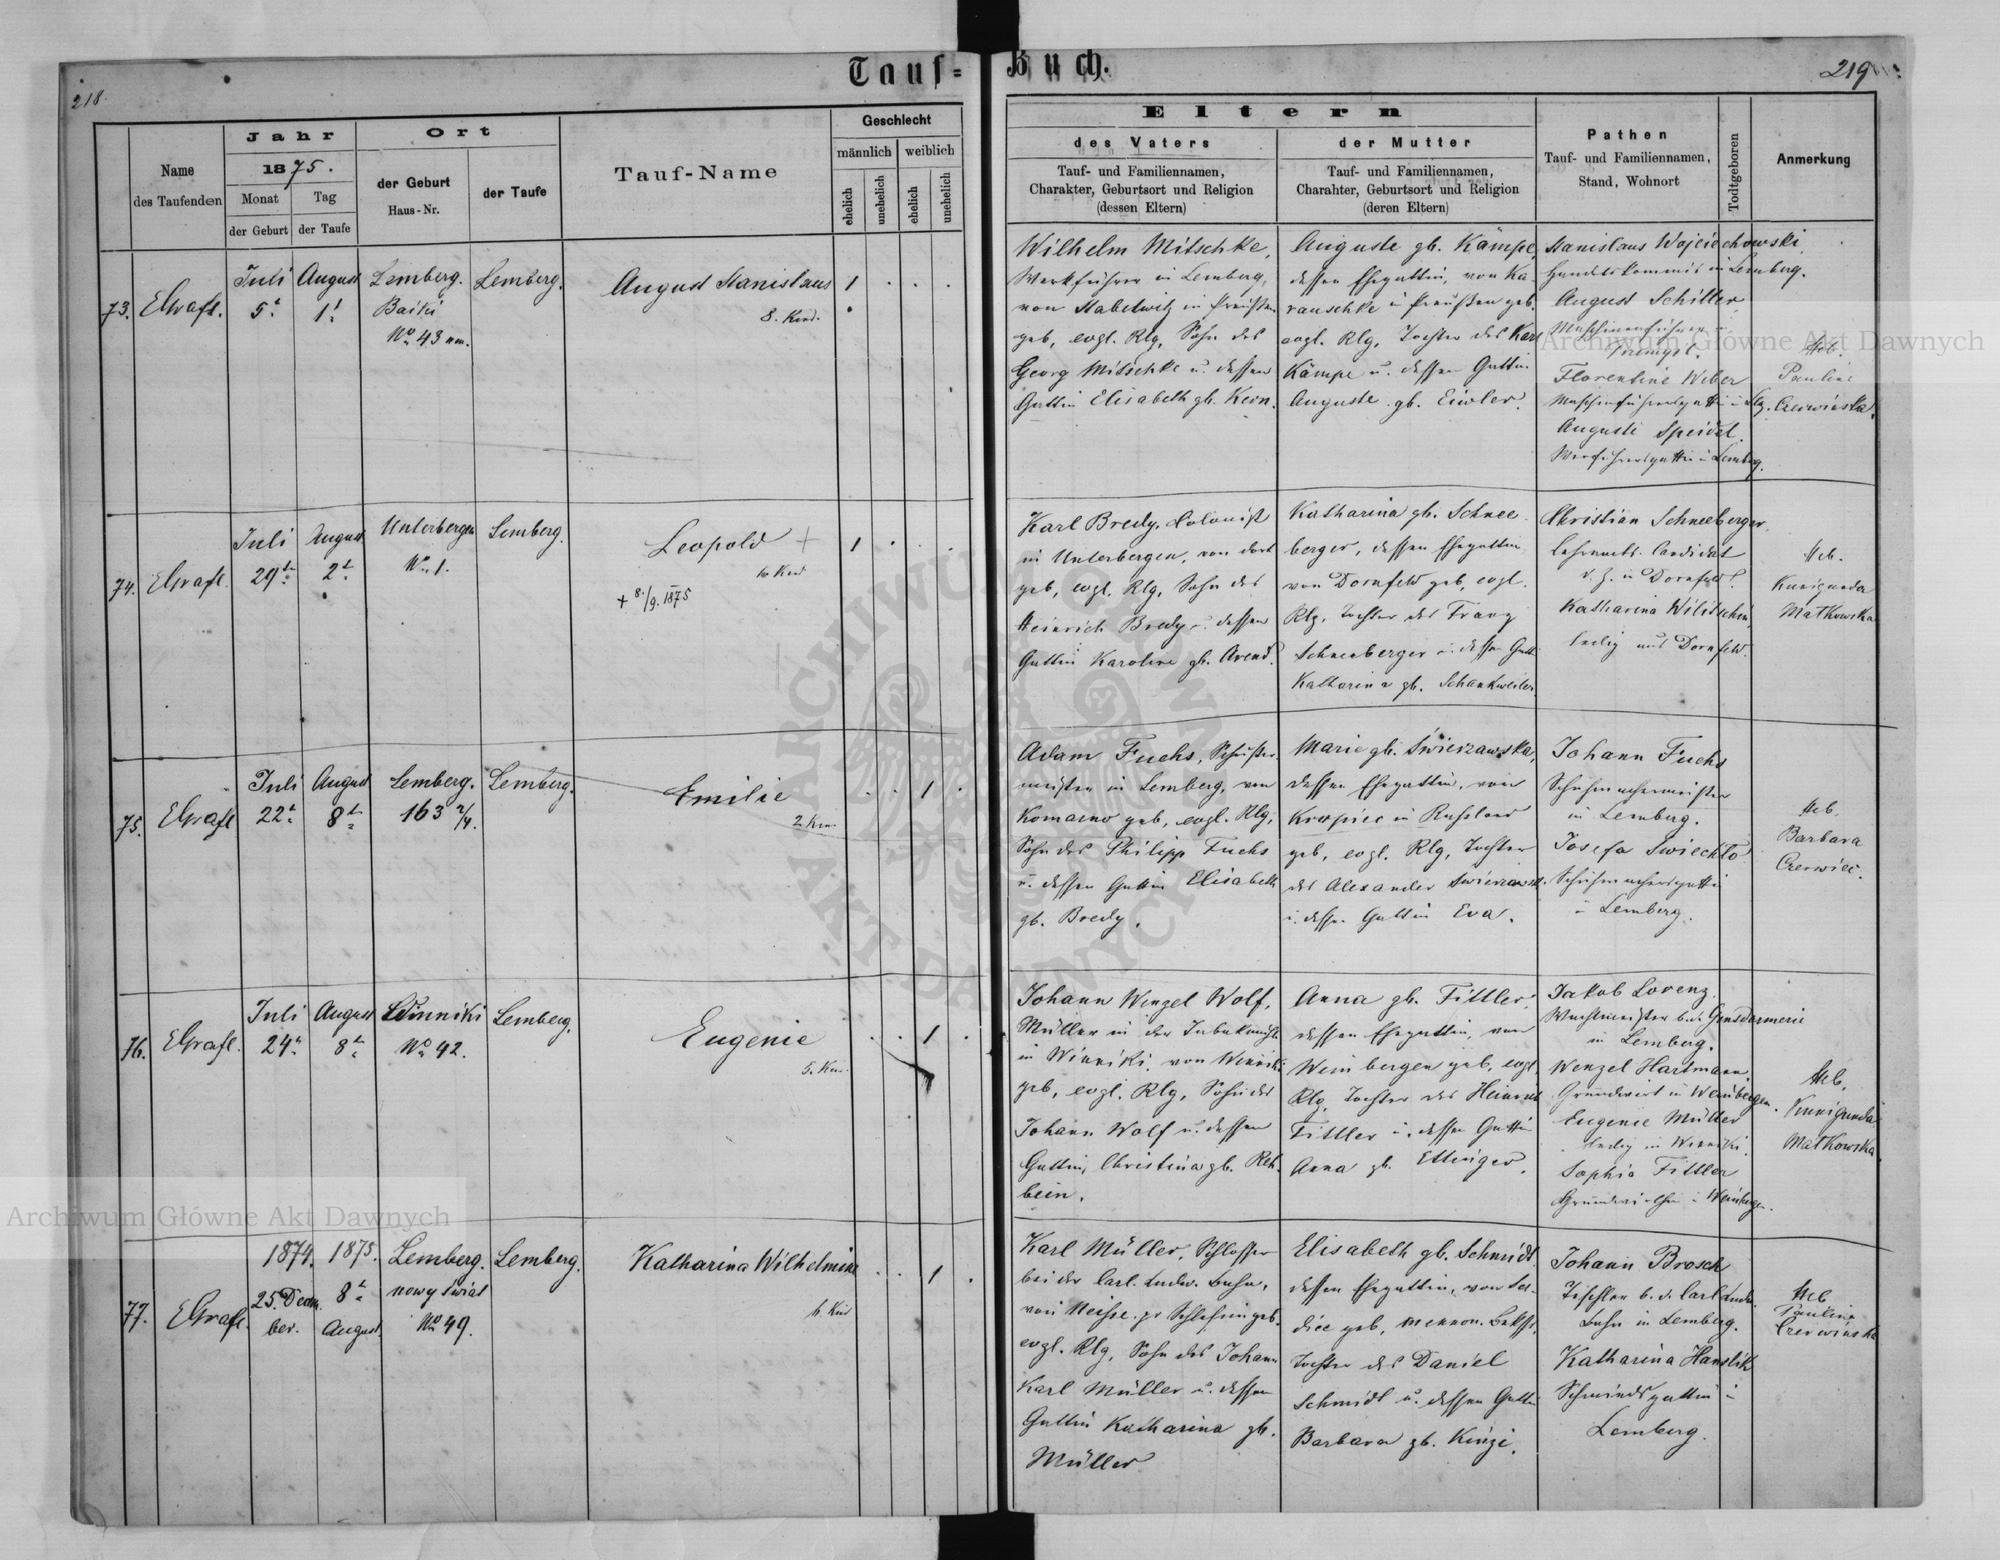 Tauf-Buch.
218.
219
Name
des Taufenden
Jahr
1875.
Monat
Tag
der Geburt
der Taufe
Ort
der Geburt
Haus-Nr.
der Taufe
Tauf-Name
Geschlecht
männlich
weiblich
ehelich
unehelich
ehelich
unehelich
Eltern
des Vaters
Tauf- und Familiennamen,
Charakter, Geburtsort und Religion
(dessen Eltern)
der Mutter
Tauf- und Familiennamen,
Charahter, Geburtsort und Religion
(deren Eltern)
Pathen
Tauf- und Familiennamen,
Stand, Wohnort
Todtgeboren
Anmerkung
73.
Juli
5t
August
1t
Lemberg.
Baiki
No 43
Lemberg.
August Stanislaus
8. Kind.
1
Wilhelm Mitschke,
Werkführer in Lemberg,
von Stabelwitz in Preußen
geb, evgl. Rlg, Sohn des
Georg Mitschke u. dessen
Gattin Elisabeth gb. Kern.
Auguste gb. Kämpe,
dessen Ehegattin, von Ka-
rauschke in Preußen geb.
evgl. Rlg, Tochter des Karl
Kämpe u. dessen Gattin
Auguste gb.
Stanislaus Wojciechowski
Handelskommis in Lemberg.
August Schiller
Maschinenführer in
Przemysl.
Florentine Weber
Auguste Speidel
Heb.
Pauline
Czerwinska.
74.
Juli
29t
August
2t
Unterbergen
No 1.
Lemberg.
Leopold +
10 Kind
+ 8./9. 1875
1
Karl Bredy, Colonist
in Unterbergen, von dort
geb, evgl. Rlg, Sohn des
Heinrich Bredy u. dessen
Gattin Karoline gb. Arend.
Katharina gb. Schnee-
berger, dessen Ehegattin
von Dornfeld geb, evgl.
Rlg, Tochter des Franz
Schneeberger u. dessen Gatt.
Katharina gb. Schankweiler.
Christian Schneeberger,
Lehramts Candidat
d. Z. in Dornfeld.
Katharina
ledig aus Dornfeld.
Heb.
Kunigunda
Matkowska
75.
Juli
22t
August
8t
Lemberg.
163 2/4.
Lemberg.
Emilie
2. Kind
1
Adam Fuchs, Schuster-
meister in Lemberg, von
Komarno geb, evgl. Rlg,
Sohn des Philipp Fuchs
u. dessen Gattin Elisabeth
gb. Bredy.
Marie gb. Świerzawska,
dessen Ehegattin, von
Kropiec in Rußland
geb, evgl. Rlg, Tochter
des Alexander
u. dessen Gattin Eva.
Johann Fuchs
Schuhmachermeister
in Lemberg.
Josefa
Schuhmachersgattin
in Lemberg.
Heb.
Barbara
Czerwiec.
76.
Juli
24t
August
8t
Winniki
No 42.
Lemberg.
Eugenie
5. Kind
1
Johann Wenzel Wolf,
Müller in der Tabakmühle
in Winniki, von Winniki
geb, evgl. Rlg, Sohn des
Johann Wolf u. dessen
Gattin, Christina gb. Reh-
bein.
Anna gb. Fittler,
dessen Ehegattin, von
Weinbergen geb, evgl
Rlg, Tochter des Heinrich
Fittler u. dessen Gattin
Anna gb. Ettinger.
Jakob Lorenz,
Wachtmeister bei Gensdarmerie
in Lemberg.
Wenzel Hartmann,
Grundwirt in Weinbergen.
Eugenie Müller
ledig in Winniki.
Sophie Fittler
in Weinbergen.
Heb.
Kunigunda
Matkowska
77.
1874.
25. Decem-
ber.
1875.
8t
August
Lemberg.
nowy świat
No 49.
Lemberg.
Katharina Wilhelmine
6. Kind
1
Karl Müller, Schlosser
bei der Carl. Ludw. Bahn,
von Neisse pr Schlesien geb.
evgl. Rlg, Sohn des Johann
Karl Müller u. dessen
Gattin Katharina gb.
Müller
Elisabeth gb. Schmidt
dessen Ehegattin, von
geb, mennon.
Tochter des Daniel
Schmidt u. dessen Gattin
Barbara gb. Kinzi.
Johann Brosch
Tischler b. d. Carl Ludw.
Bahn in Lemberg.
Katharina Hanslik
Schmiedsgattin in
Lemberg.
Heb
Paulina
Czerwinska
Archiwum Główne Akt Dawnych
Archiwum Główne Akt Dawnych
ARCHIWUM GŁÓWNE AKT DAWNYCH